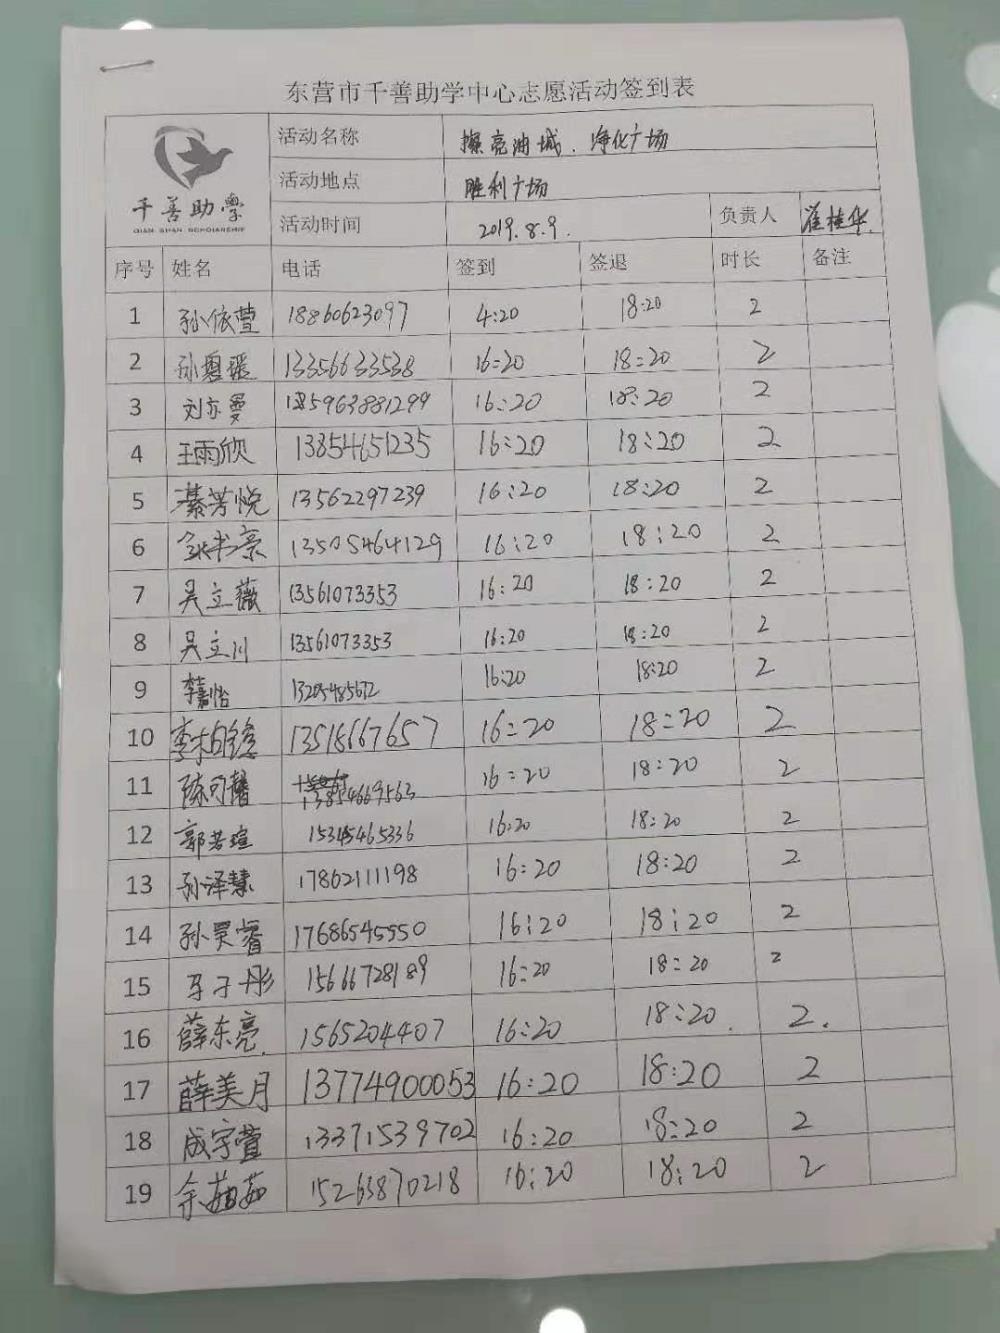 东营市千善助学中心志愿活动签到表
千善助學
QIAN SHAN SCHOLARSHIP
活动名称 擦亮油城、净化广场
活动地点 胜利广场
活动时间 2019.8.9. 负责人 崔桂华
序号 姓名 电话 签到 签退 时长 备注
1 孙依萱 18860623097 4:20 18:20 2
2 13356633538 16:20 18:20 2
3 刘亦雯 16:20 18:20 2
4 王雨欣 13854651235 16:20 18:20 2
5 綦芳悦 13562297239 16:20 18:20 2
6 13505464129 16:20 18:20 2
7 吴立薇 13561073353 16:20 18:20 2
8 吴立川 13561073353 16:20 18:20 2
9 李嘉怡 16:20 18:20 2
10 13518667657 16:20 18:20 2
11 陈可馨 13854669563 16:20 18:20 2
12 郭芳瑄 15345465336 16:20 18:20 2
13 孙泽慧 17862111198 16:20 18:20 2
14 孙昊睿 17686545550 16:20 18:20 2
15 15666728189 16:20 18:20 2
16 薛东亮. 1565204407 16:20 18:20. 2.
17 薛美月 13774900053 16:20 18:20 2
18 成宇萱 13371539702 16:20 18:20 2
19 余茹茹 15263870218 16:20 18:20 2